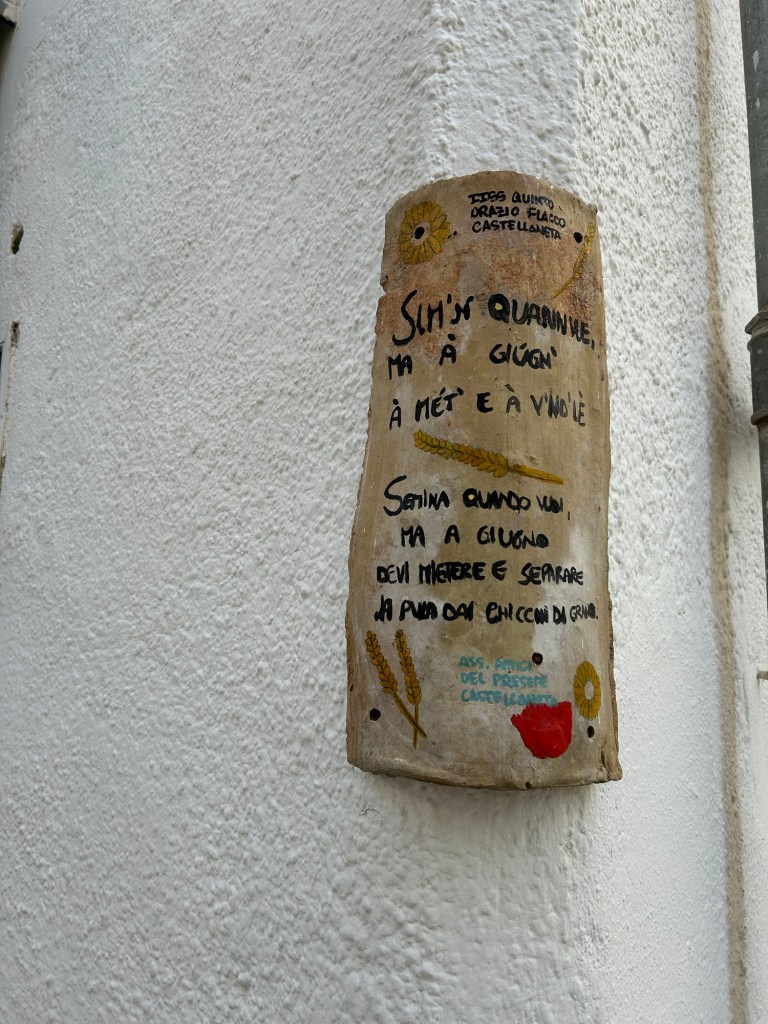 IISS QUINTO
ORAZIO FLACCO
CASTELLANETA
SIM'N QUANN VUE,
MA À GIÚGN'
À MÉT' E À V'ND'LÈ
SEMINA QUANDO VUOI,
MA A GIUGNO
DEVI MIETERE E SEPARARE
LA PULA DAI CHICCHI DI GRANO.
ASS. AMICI
DEL PRESEPE
CASTELLANETA